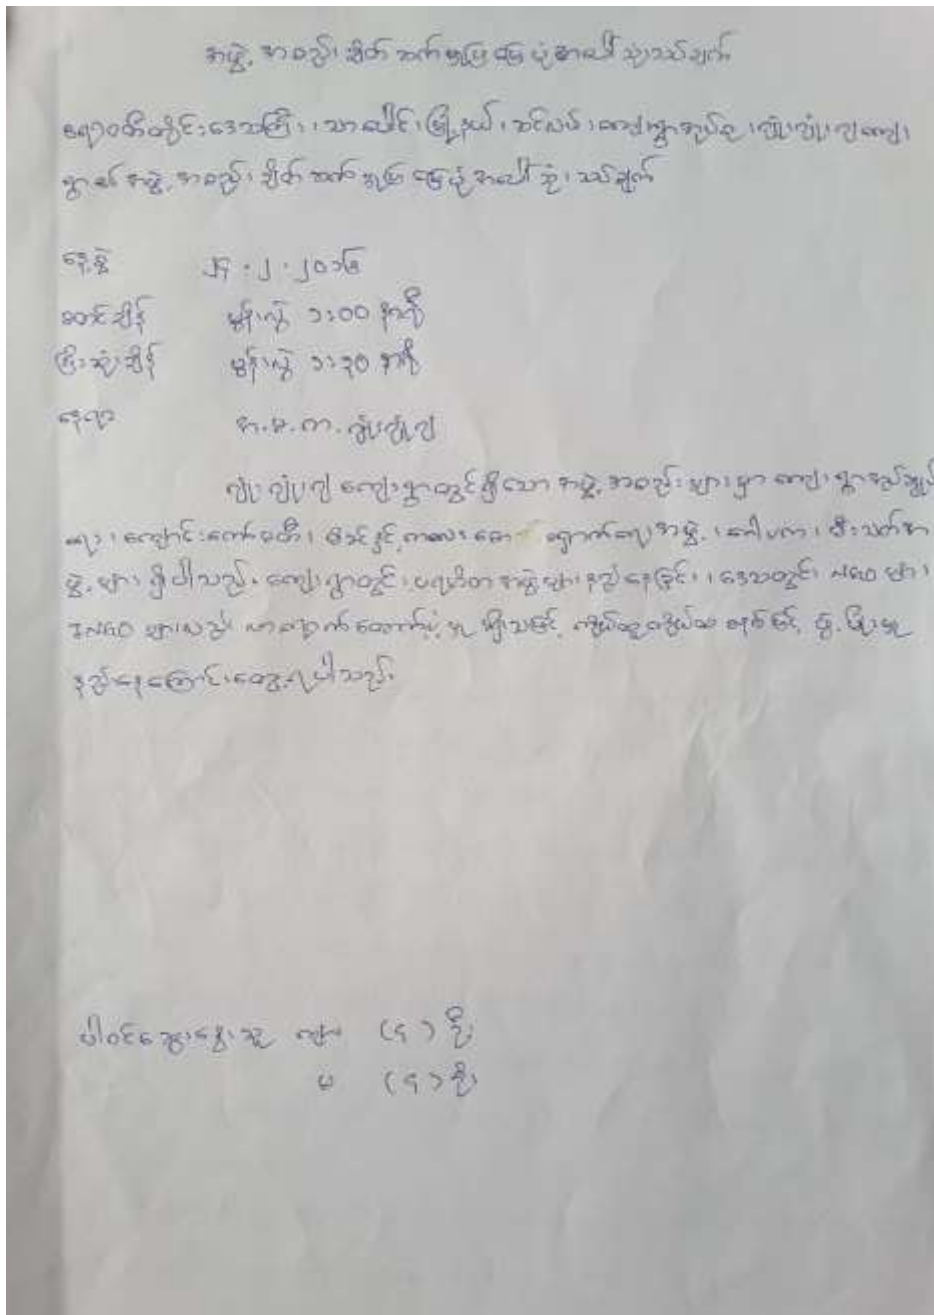 အဖွဲ့အစည်းချိတ်ဆက်မှုပြမြေပုံအပေါ်သုံးသပ်ချက်
ဧရာဝတီတိုင်းဒေသကြီး၊ သာပေါင်းမြို့နယ်၊ ကျေးရွာအုပ်စု၊ ကျေး
ရွာ၏ အဖွဲ့အစည်းချိတ်ဆက်မှုပြမြေပုံအပေါ်သုံးသပ်ချက်
နေ့စွဲ ၂၄.၂.၂၀၁၆
စတင်ချိန် မွန်းလွဲ ၁:၀၀ နာရီ
ပြီးဆုံးချိန် မွန်းလွဲ ၁:၃၀ နာရီ
နေရာ အ.မ.က.
ကျေးရွာတွင်ရှိသော အဖွဲ့အစည်းများမှာ ကျေးရွာ
ရေး၊ ကျောင်းကော်မတီ၊ မိခင်နှင့်ကလေး စောင့်ရှောက်ရေးအဖွဲ့၊ မီးသတ်အ
ဖွဲ့များ ရှိပါသည်။ ကျေးရွာတွင် ပရဟိတအဖွဲ့များနည်းနေခြင်း၊ ဒေသတွင်း NGO များ၊
INGO များသည် လာရောက်ထောက်ပံ့မှု မရှိသဖြင့် ကိုယ်ထူကိုယ်ထ စနစ်ဖြင့် ဖွံ့ဖြိုးမှု
နည်းနေကြောင်းတွေ့ရပါသည်။
ပါဝင်ဆွေးနွေးသူ ကျား (၄) ဦး
မ (၄) ဦး